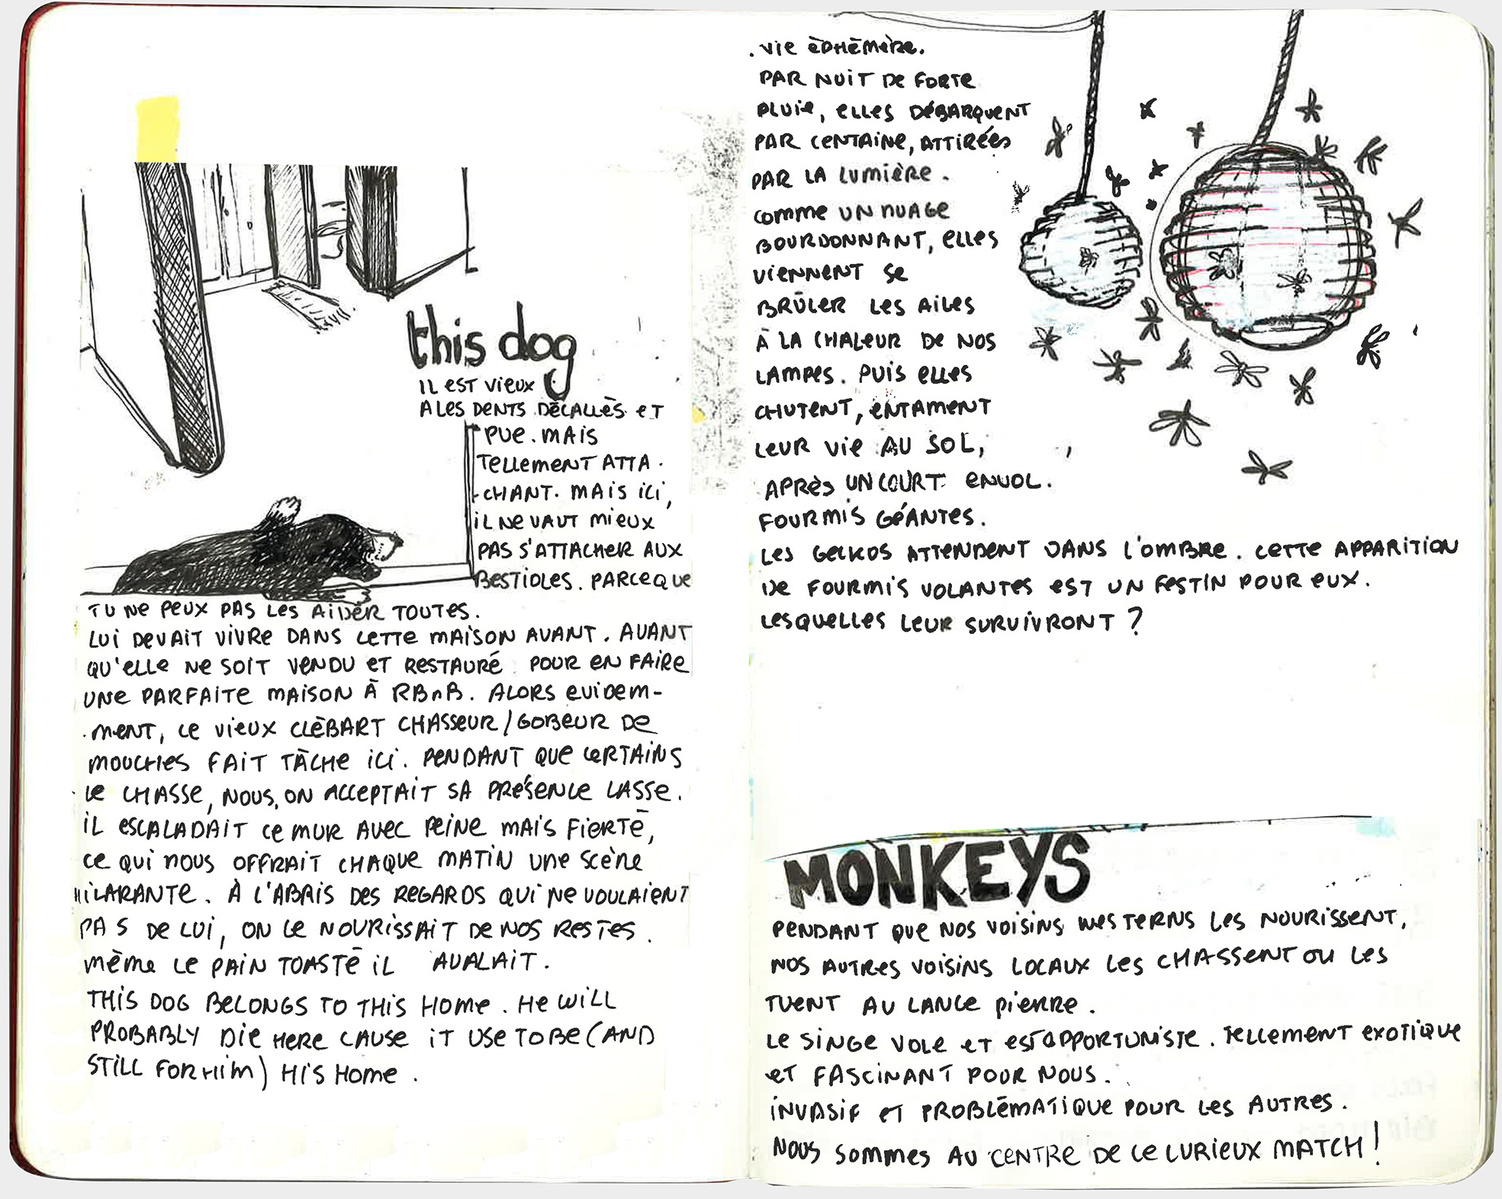 this dog
IL EST VIEUX
A LES DENTS DÉCALLÈS ET
PUE. MAIS
TELLEMENT ATTA-
-CHANT. MAIS ICI,
IL NE VAUT MIEUX
PAS S'ATTACHER AUX
BESTIOLES. PARCEQUE
TU NE PEUX PAS LES AIDER TOUTES.
LUI DEVAIT VIVRE DANS CETTE MAISON AVANT. AVANT
QU'ELLE NE SOIT VENDU ET RESTAURÉ POUR EN FAIRE
UNE PARFAITE MAISON À RBnB. ALORS EVIDEM-
-MENT, CE VIEUX CLÉBART CHASSEUR/GOBEUR DE
MOUCHES FAIT TÂCHE ICI. PENDANT QUE CERTAINS
LE CHASSE, NOUS, ON ACCEPTAIT SA PRÉSENCE LASSE.
IL ESCALADAIT CE MUR AVEC PEINE MAIS FIERTÉ,
CE QUI NOUS OFFRAIT CHAQUE MATIN UNE SCÈNE
HILARANTE. À L'ABAIS DES REGARDS QUI NE VOULAIENT
PAS DE LUI, ON LE NOURISSAIT DE NOS RESTES.
MÊME LE PAIN TOASTÉ IL AVALAIT.
THIS DOG BELONGS TO THIS HOME. HE WILL
PROBABLY DIE HERE CAUSE IT USE TO BE (AND
STILL FOR HIM) HIS HOME.
. VIE ÉPHÉMÈRE.
PAR NUIT DE FORTE
PLUIE, ELLES DÉBARQUENT
PAR CENTAINE, ATTIRÉES
PAR LA LUMIÈRE.
COMME UN NUAGE
BOURDONNANT, ELLES
VIENNENT SE
BRÛLER LES AILES
À LA CHALEUR DE NOS
LAMPES. PUIS ELLES
CHUTENT, ENTAMENT
LEUR VIE AU SOL,
APRÈS UN COURT ENVOL.
FOURMIS GÉANTES.
LES GECKOS ATTENDENT DANS L'OMBRE. CETTE APPARITION
DE FOURMIS VOLANTES EST UN FESTIN POUR EUX.
LESQUELLES LEUR SURVIVRONT ?
MONKEYS
PENDANT QUE NOS VOISINS WESTERNS LES NOURISSENT,
NOS AUTRES VOISINS LOCAUX LES CHASSENT OU LES
TUENT AU LANCE PIERRE.
LE SINGE VOLE ET EST OPPORTUNISTE. TELLEMENT EXOTIQUE
ET FASCINANT POUR NOUS.
INVASIF ET PROBLÉMATIQUE POUR LES AUTRES.
NOUS SOMMES AU CENTRE DE CE CURIEUX MATCH !